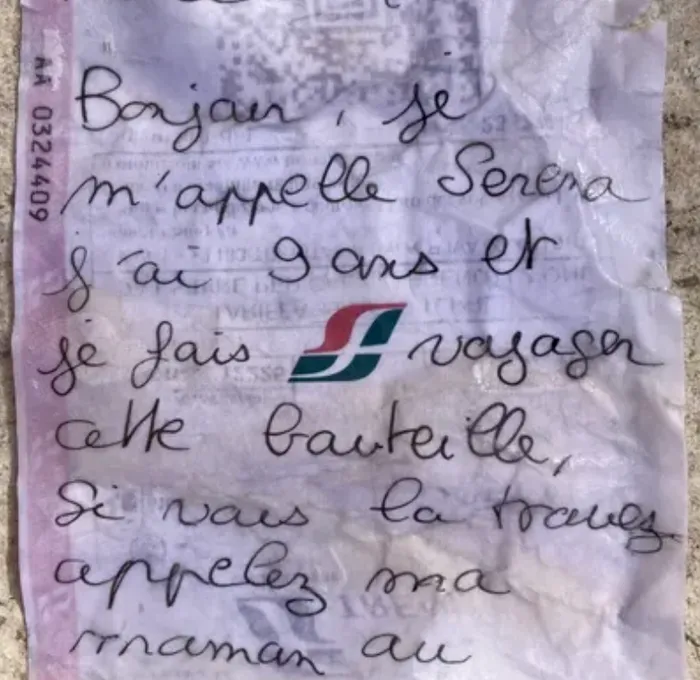 AA 0324409
Bonjour, je
m'appelle Serena
j'ai 9 ans et
je fais voyager
cette bouteille,
Si vous la trouvez
appelez ma
maman au